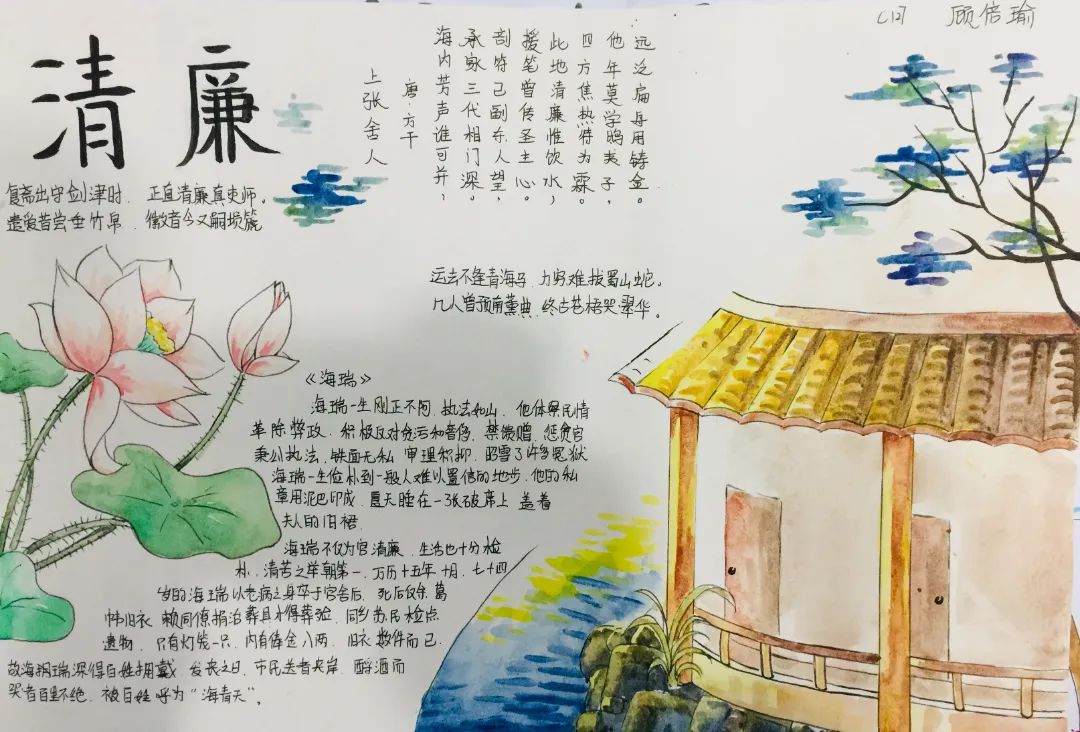 顾倍瑜
清廉
复斋出守剑津时 正直清廉真吏师。
遗爱昔尝垂竹帛 徽音今又嗣埙篪
上张舍人
唐·方干
海内芳声谁可并，
承家三代相门深。
剖符已副东人望，
援笔曾传圣主心。
此地清廉惟饮水，
四方焦热待为霖。
他年莫学鸱夷子，
远泛扁舟用铸金。
运去不逢青海马、力穷难拔蜀山蛇。
几人曾预南薰典、终古苍梧哭翠华。
《海瑞》
海瑞一生刚正不阿、执法如山、他体察民情
革除弊政、积极反对贪污和奢侈、禁馈赠、惩贪官
秉公执法、铁面无私 审理积抑、昭雪了许多冤狱
海瑞一生俭朴到一般人难以置信的地步、他的私
章用泥巴印成、夏天睡在一张破席上 盖着
夫人的旧裙.
海瑞不仅为官清廉、生活也十分检
朴、清苦之举朝第一、万历十五年十月、七十四
岁的海瑞以老病之身卒于官舍后、死后仅余葛
帏旧衣 赖同僚捐治葬具才得葬殓、同乡苏民检点
遗物、只有灯笼一只、内有俸金八两、旧衣数件而已.
故海瑞深得百姓拥戴、发丧之日、市民送者夹岸、酹酒而
哭者百里不绝、被百姓呼为“海青天”。